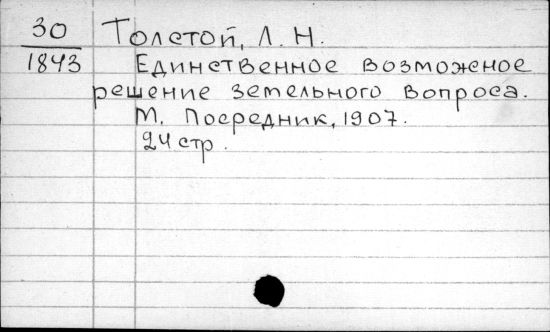 30
1843
Толстой, Л. Н.
Единственное возможное
решение земельного вопроса.
М. Посредник, 1907.
24 стр.